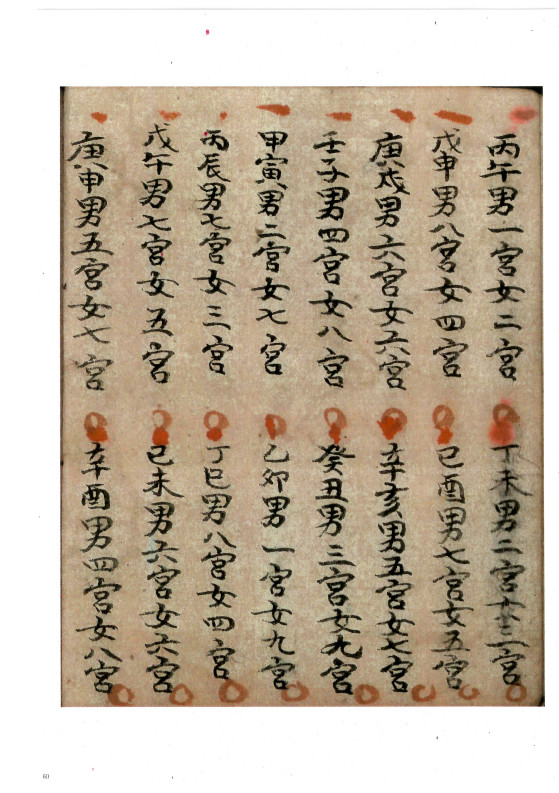 丙午男一宮女二宮
丁未男二宮女三宮
戊申男八宮女四宮
己酉男七宮女五宮
庚戌男六宮女六宮
辛亥男五宮女七宮
壬子男四宮女八宮
癸丑男三宮女九宮
甲寅男二宮女七宮
乙卯男一宮女九宮
丙辰男七宮女三宮
丁巳男八宮女四宮
戊午男七宮女五宮
己未男六宮女六宮
庚申男五宮女七宮
辛酉男四宮女八宮
60